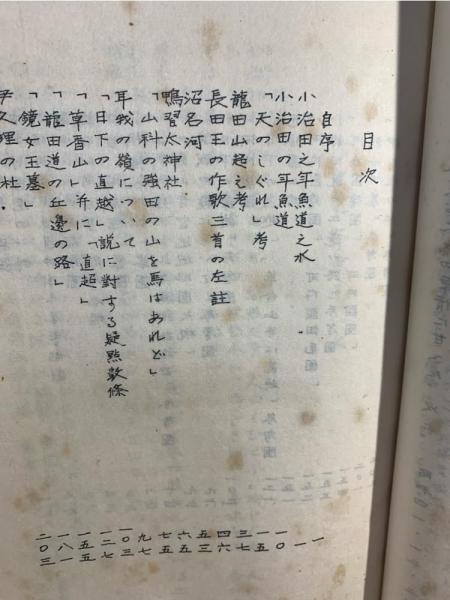 目次
自序 一
小治田之年魚道之水 一
小治田の年魚道 一〇
「天のしぐれ」考 一五
龍田山越え考 三七
長田王の作歌三首の左註 四六
沼名河 五三
鴨習太神社 六五
「山科の強田の山を馬はあれど」 七五
耳我の嶺について 九七
「日下の直越」説に対する疑點数條 一〇三
「草香山」并に「直越」 一二七
「龍田道の丘邊の路」 一五一
「鏡女王墓」 一八一
久理の杜 二〇三